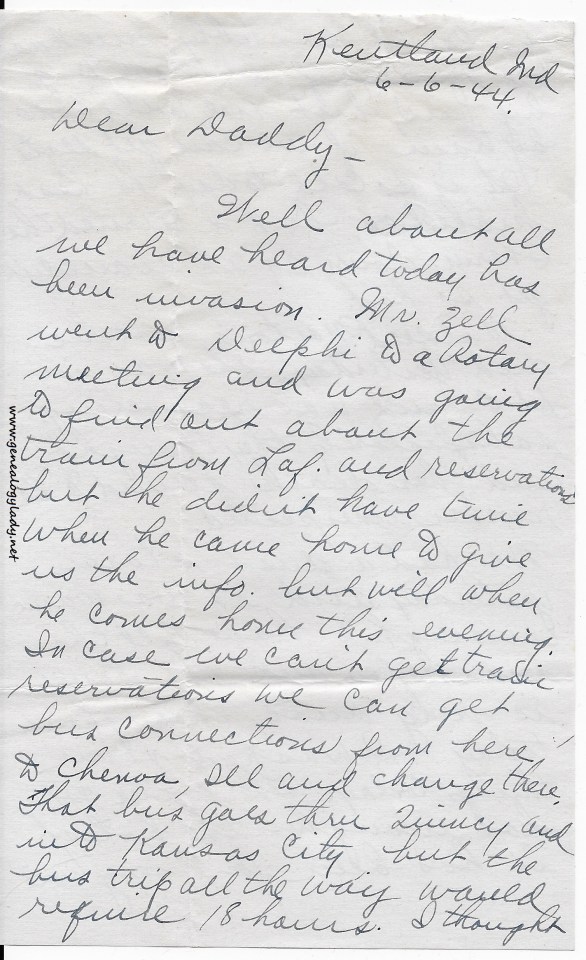 Kentland Ind
6-6-44.
Dear Daddy -
Well about all
we have heard today has
been invasion. Mr. Zell
went to Delphi to a Rotary
meeting and was going
to find out about the
train from Laf. and reservations
but he didn't have time
when he came home to give
us the info. but will when
he comes home this evening.
In case we can't get train
reservations we can get
bus connections from here
to Chenoa, Ill and change there.
That bus goes thru Quincy and
into Kansas City but the
bus trip all the way would
require 18 hours. I thought
www.genealogylady.net